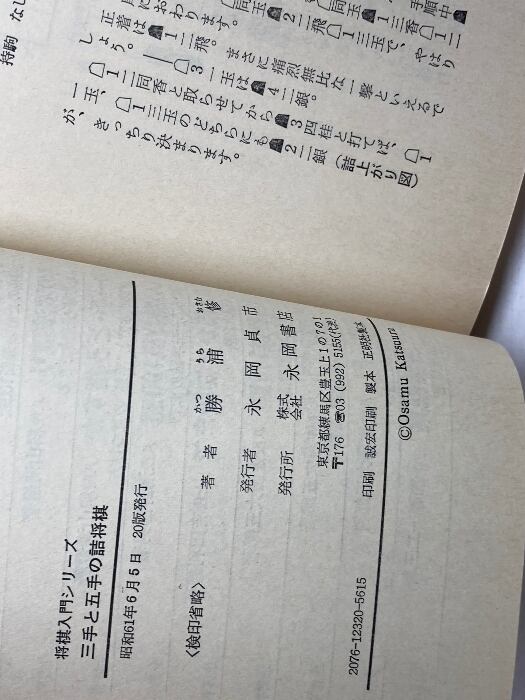 持駒 なし
におわります。
正着は▲1二飛。まさに痛烈無比な一撃といえるで
しょう。
△3一玉は▲4二銀。
△1二同香と取らせてから▲3四桂と打てば、△1
一玉、△1三玉のどちらにも▲2二銀(詰上がり図)
が、きっちり決まります。
将棋入門シリーズ
三手と五手の詰将棋
昭和61年6月5日 20版発行
〈検印省略〉
著者 勝浦修
かつ うら おさむ
発行者 永岡貞市
発行所 株式会社 永岡書店
東京都練馬区豊玉上1の7の1
〒176 ☎03(992)5155(代表)
印刷 誠宏印刷 製本 正明社製本
2076-12320-5615
©Osamu Katsuura